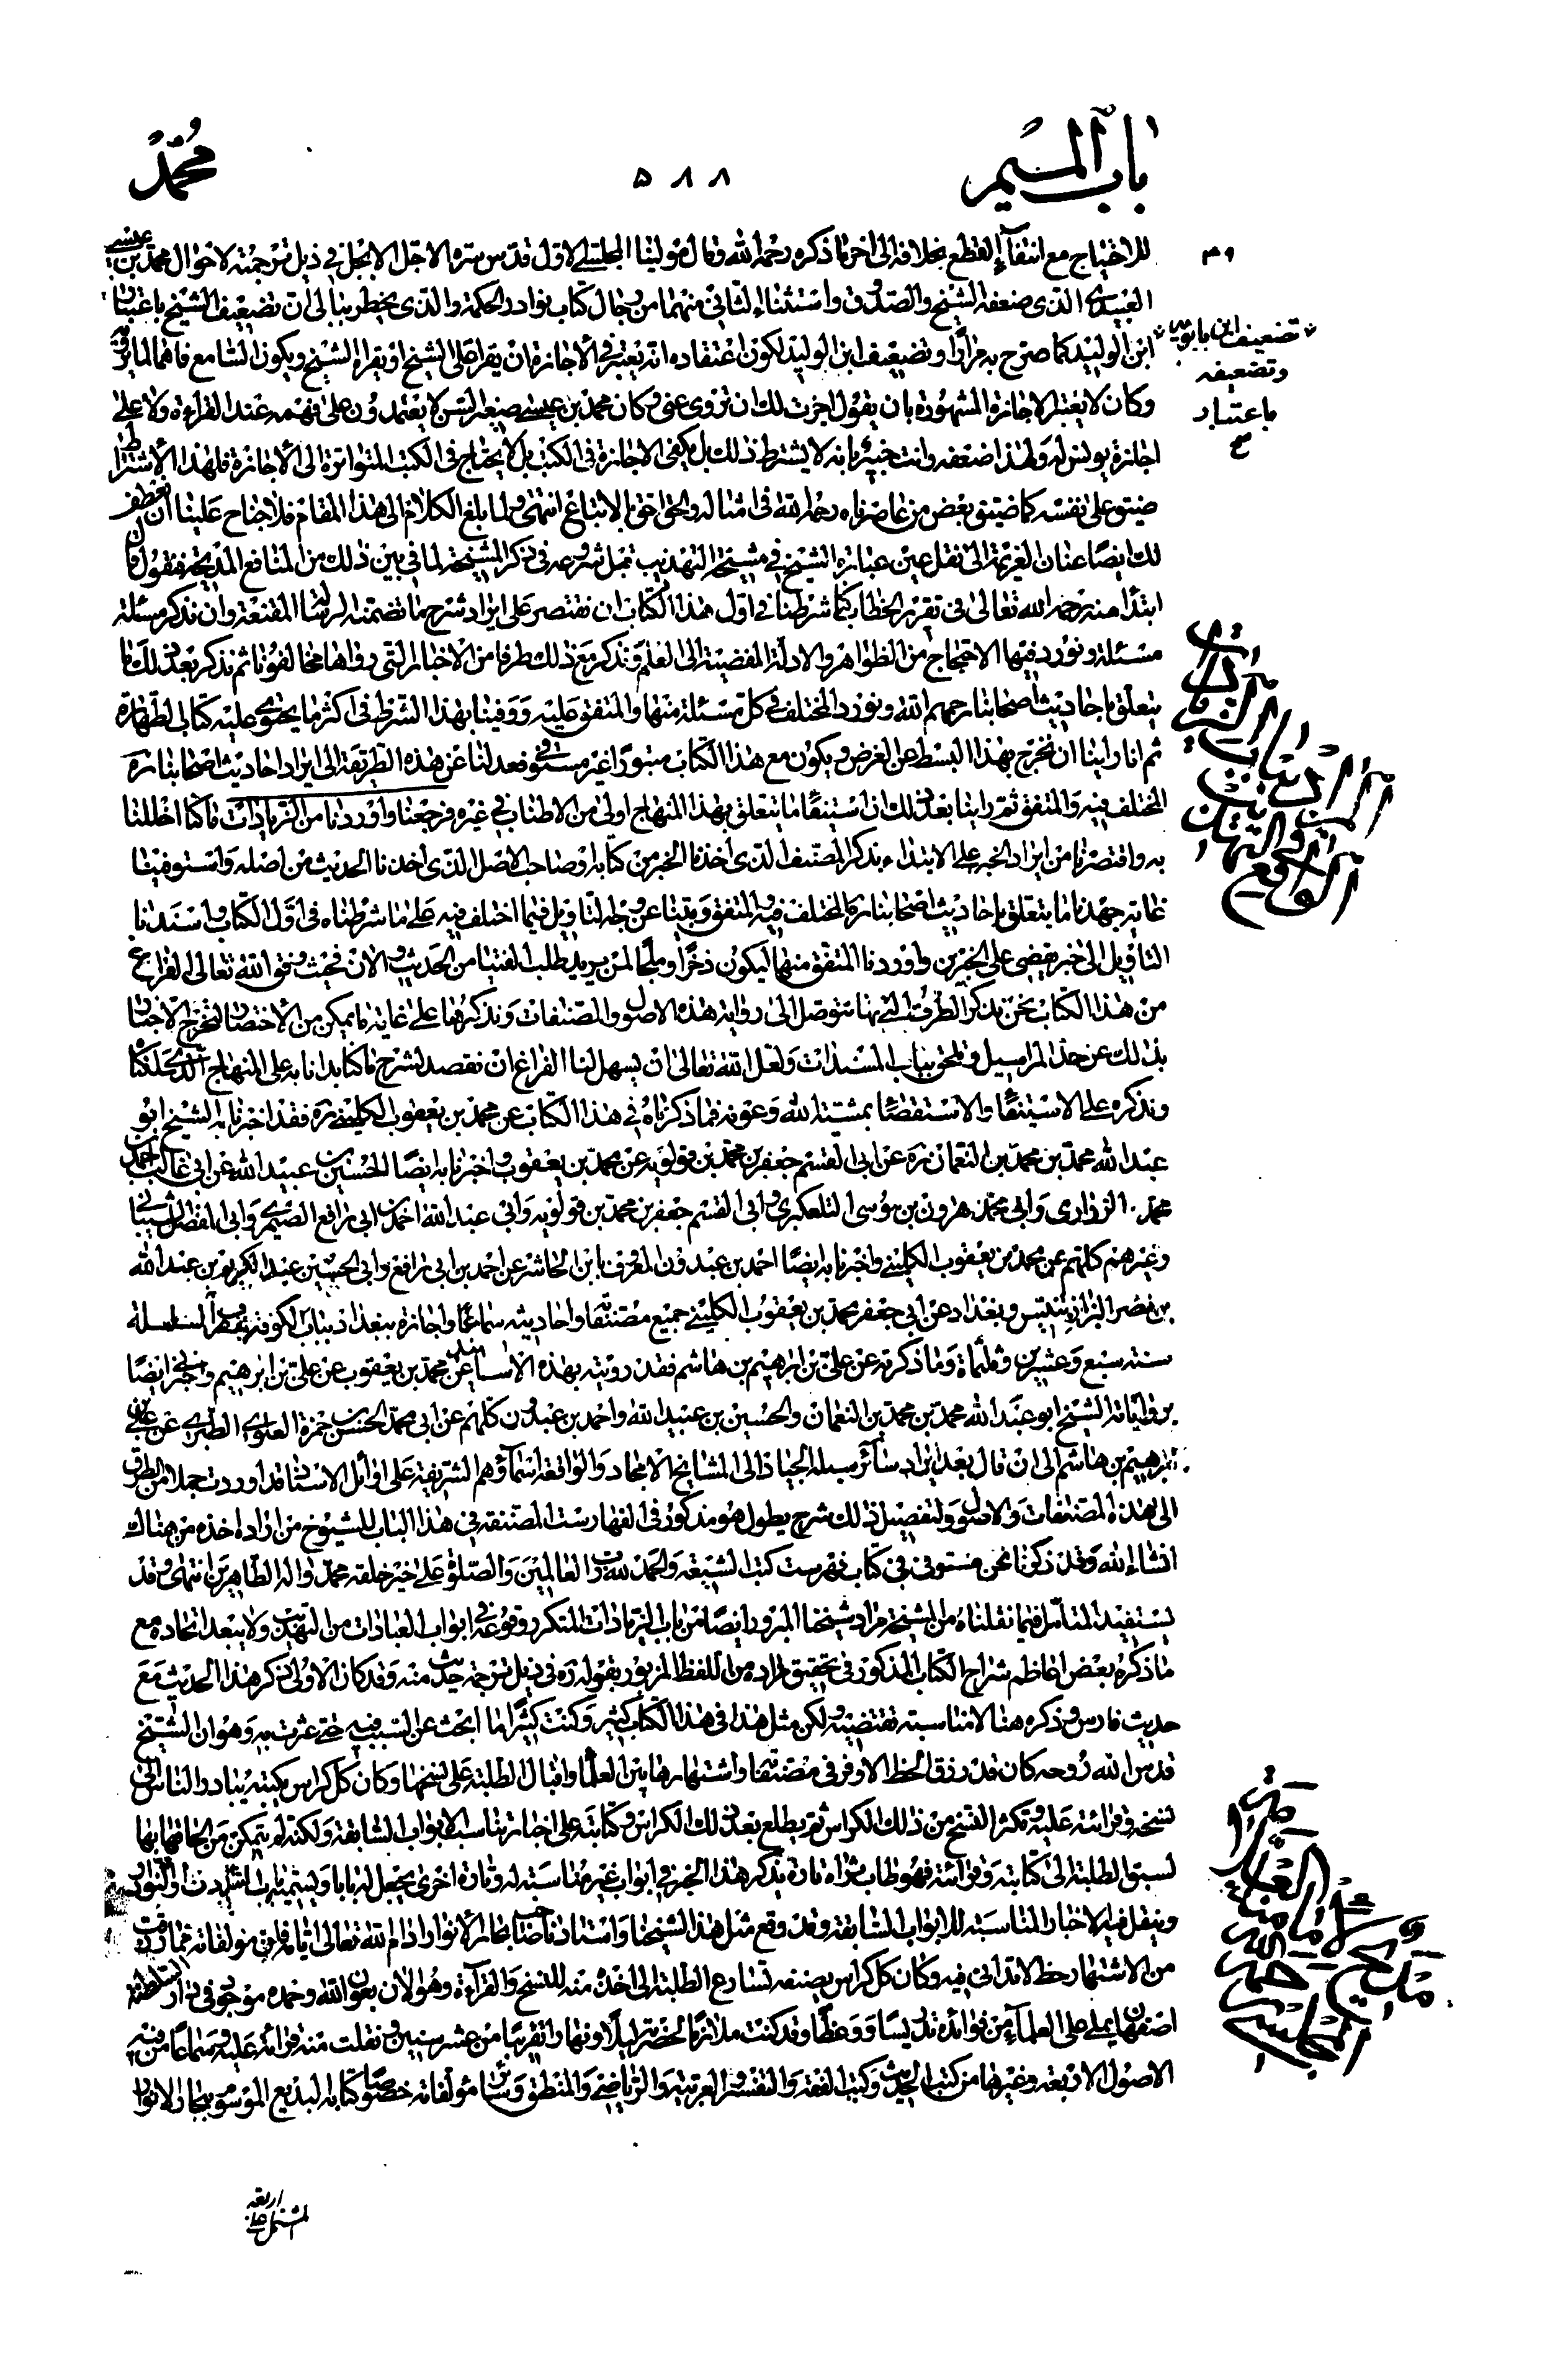 باب الميم
٥٨٨
محمد
للاحتياج مع انتفاء القطع بخلافه الى اخر ما ذكره رحمه الله وقال مولينا المجلسى الاول قدس سره الاجل الابجل فى ذيل ترجمته لاحوال محمد بن عيسى
العبيدى الذى ضعفه الشيخ والصدوق واستثناء الثانى منهما من رجال كتاب نوادر الحكمة والذى يخطر ببالى ان تضعيف الشيخ باعتبار
تضعيف ابن بابويه
وتضعيفه
باعتبار
ابن الوليد كما صرح به مرارا وتضعيف ابن الوليد لكون اعتقاده انه يعتبر فى الاجازة ان يقرأ على الشيخ او يقرأ الشيخ ويكون السامع فاهما لما يرويه
وكان لا يعتبر الاجازة المشهورة بان يقول اجزت لك ان تروى عنى وكان محمد بن عيسى صغير السن لا يعتمدون على فهمه عند القراءة ولا على
اجازة يونس له ولهذا ضعفه وانت خبير بانه لا يشترط ذلك بل يكفى الاجازة فى الكتب بل لا يحتاج فى الكتب المتواترة الى الاجازة فلهذا الاشتراط
ضيق على نفسه كما ضيق بعض من عاصرناه رحمه الله فى امثاله والحق احق بالاتباع انتهى ولما بلغ الكلام الى هذا المقام فلا جناح علينا ان نعطف
لك ايضا عنان العزيمة الى نقل عين عبارة الشيخ فى مشيخة التهذيب قبل شروعه فى ذكر المشيخة لما فى بين ذلك من المنافع المديحة فنقول قال
ابتدأ منه رحمه الله تعالى فى تقرير الخطاب كنا شرطنا فى اول هذا الكتاب ان نقتصر على ايراد شرح ما تضمنته الرسالة المقنعة وان نذكر مسئلة
مسئلة ونورد فيها الاحتجاج من الظواهر والادلة المفضية الى العلم ونذكر مع ذلك طرفا من الاخبار التى رواها مخالفونا ثم نذكر بعد ذلك ما
يتعلق باحاديث اصحابنا رحمهم الله ونورد المختلف فى كل مسئلة منها والمتفق عليه ووفينا بهذا الشرط فى اكثر ما يحتوى عليه كتاب الطهارة
ثم انا راينا ان نخرج بهذا البسط عن الغرض ويكون مع هذا الكتاب مبتورا غير مستوفى فعدلنا عن هذه الطريقة الى ايراد احاديث اصحابنا ره
المختلف فيه والمتفق ثم راينا بعد ذلك ان استيفاء ما يتعلق بهذا المنهاج اولى من الاطناب فى غيره فرجعنا واوردنا من الزيادات ما كنا اخللنا
به واقتصرنا من ايراد الخبر على الابتداء بذكر المصنف الذى اخذنا الخبر من كتابه او صاحب الاصل الذى اخذنا الحديث من اصله واستوفينا
غاية جهدنا ما يتعلق باحاديث اصحابنا ره المختلف فيه والمتفق وبينا عن وجه التاويل فيما اختلف فيه على ما شرطناه فى اول الكتاب واسندنا
التاويل الى خبر يقضى على الخبرين واوردنا المتفق منهما ليكون ذخرا وملجأ لمن يريد طلب الفتيا من الحديث والان فحيث وفق الله تعالى الفراغ
من هذا الكتاب نحن نذكر الطرق التى بها نتوصل الى رواية هذه الاصول والمصنفات ونذكرها على غاية ما يمكن من الاختصار لتخرج الاخبار
بذلك عن حد المراسيل وتلحق بباب المسندات ولعل الله تعالى ان يسهل لنا الفراغ ان نقصد لشرح ما كنا بدانا به على المنهاج الذى سلكناه
ونذكره على الاستيفاء والاستقصاء بمشية الله وعونه فما ذكرناه فى هذا الكتاب عن محمد بن يعقوب الكلينى ره فقد اخبرنا به الشيخ ابو
عبد الله محمد بن محمد بن النعمان ره عن ابى القسم جعفر بن محمد بن قولويه عن محمد بن يعقوب واخبرنا به ايضا الحسين بن عبيد الله عن ابى غالب احمد بن
محمد الزرارى وابى محمد هرون بن موسى التلعكبرى وابى القسم جعفر بن محمد بن قولويه وابى عبد الله احمد بن ابى رافع الصيمرى وابى المفضل الشيبانى
وغيرهم كلهم عن محمد بن يعقوب الكلينى واخبرنا به ايضا احمد بن عبدون المعروف بابن الحاشر عن احمد بن ابى رافع وابى الحسين عبد الكريم بن عبد الله
بن نصر البزاز بتنيس وبغداد عن ابى جعفر محمد بن يعقوب الكلينى جميع مصنفاته واحاديثه سماعا واجازة ببغداد بباب الكوفة بدرب السلسلة
سنة سبع وعشرين وثلثمأة وما ذكرته عن على بن ابرهيم بن هاشم فقد رويته بهذه الاسانيد عن محمد بن يعقوب عن على بن ابرهيم واخبرنى ايضا
برواياته الشيخ ابو عبد الله محمد بن محمد بن النعمان والحسين بن عبيد الله واحمد بن عبدون كلهم عن ابى محمد الحسن بن حمزة العلوى الطبرى عن على بن
ابرهيم بن هاشم الى ان قال بعد ايراد سائر سبله الجياد الى المشايخ الامجاد والواقعة اسماؤهم الشريفة على اوائل الاسناد قد اوردت جملا من الطرق
الى هذه المصنفات والاصول ولتفصيل ذلك شرح يطول هو مذكور فى الفهارست المصنفة فى هذا الباب للشيوخ من اراد اخذه من هناك
انشاء الله وقد ذكرنا نحن مستوفى فى كتاب فهرست كتب الشيعة والحمد لله رب العالمين والصلوة على خير خلقه محمد واله الطاهرين انتهى وقد
يستفيد المتأمل فيما نقلناه من المشيخة مراد شيخنا المبرور ايضا من باب الزيادات المتكرر وقوعه فى ابواب العبادات من التهذيب ولا يبعد اتحاده مع
ما ذكره بعض اعاظم شراح الكتاب المذكور فى تحقيق مراده من اللفظ المزبور بقوله ره فى ذيل ترجمة حديث منه وقد كان الاولى ذكر هذا الحديث مع
حديث فارس وذكره هنا لا مناسبة تقتضيه ولكن مثل هذا فى هذا الكتاب كثير وكنت كثيرا ما ابحث عن السبب فيه حتى عثرت به وهو ان الشيخ
قدس الله روحه كان قد رزق الحظ الاوفر فى مصنفاته واشتهارها بين العلماء واقبال الطلبة على نسخها وكان كل كراس يكتبه يبادر الناس الى
نسخه وقرائته عليه وتكثر النسخ من ذلك الكراس ثم يطلع بعد ذلك الكراس وكتابته على اخبار تناسب الابواب السابقة ولكنه لم يتمكن من الحاقها بها
لسبق الطلبة الى كتابته وقرائته فهو طاب ثراه تارة يذكر هذا الخبر فى ابواب غير مناسبة له وتارة اخرى يجعل له بابا ويسميه باب الزيادات او النوادر
وينقل فيه الاخبار المناسبة للابواب السابقة وقد وقع مثل هذا لشيخنا واستادنا صاحب بحار الانوار ادام الله تعالى ايامه فان مؤلفاته مما رزقت
من الاشتهار حظ لا تدانى فيه وكان كل كراس يصنفه تسارع الطلبة الى اخذه منه للنسخ والقرآءة وهو الان بعون الله وحمده موجود فى دار السلطنة
اصفهان يملى على العلمآء من فوائده تدريسا ووعظا وقد كنت ملازما لحضرته ليلا ونهارا تقريبا من عشر سنين ونقلت منه قرائة عليه وسماعا من فيه
الاصول الاربعة وغيرها من كتب الحديث وكتب الفقه والتفسير والعربية والرياضى والمنطق وسائر مؤلفاته خصوصا كتابه البديع الموسوم ببحار الانوار
المشتمل على اربعة